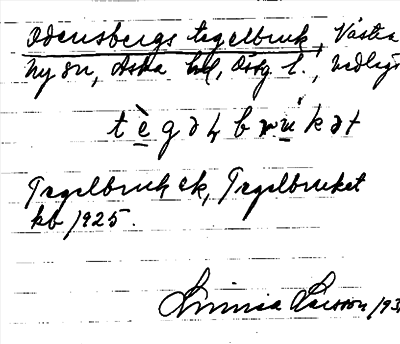 Odensbergs tegelbruk, Västra
Ny sn, Aska hd, Östg. l., nedlagt
tègəlbrúkət
Tegelbruk ek, Tegelbruket
kb 1925.
Linnea Larsson 193